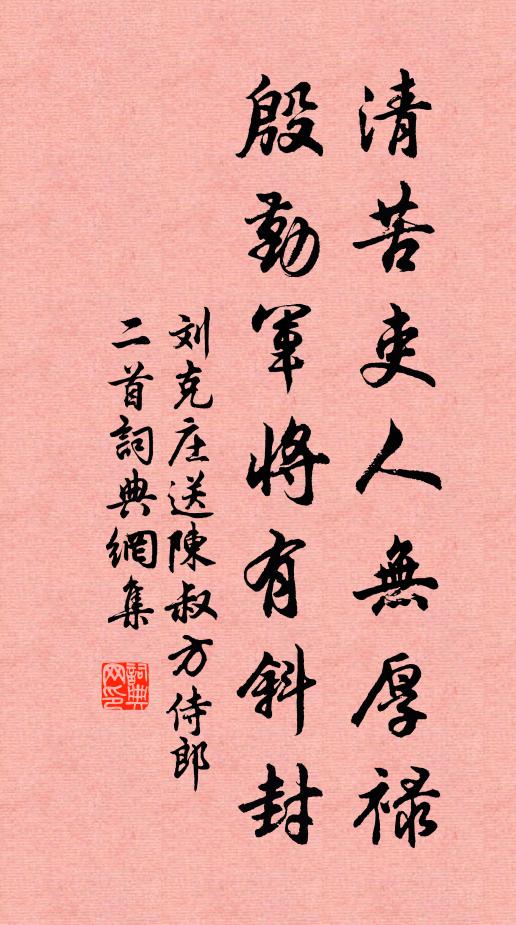 清苦吏人無厚禄
殷勤軍將有斜封
刘克庄送陳叔方侍郎
二首詞典網集
詞典網印